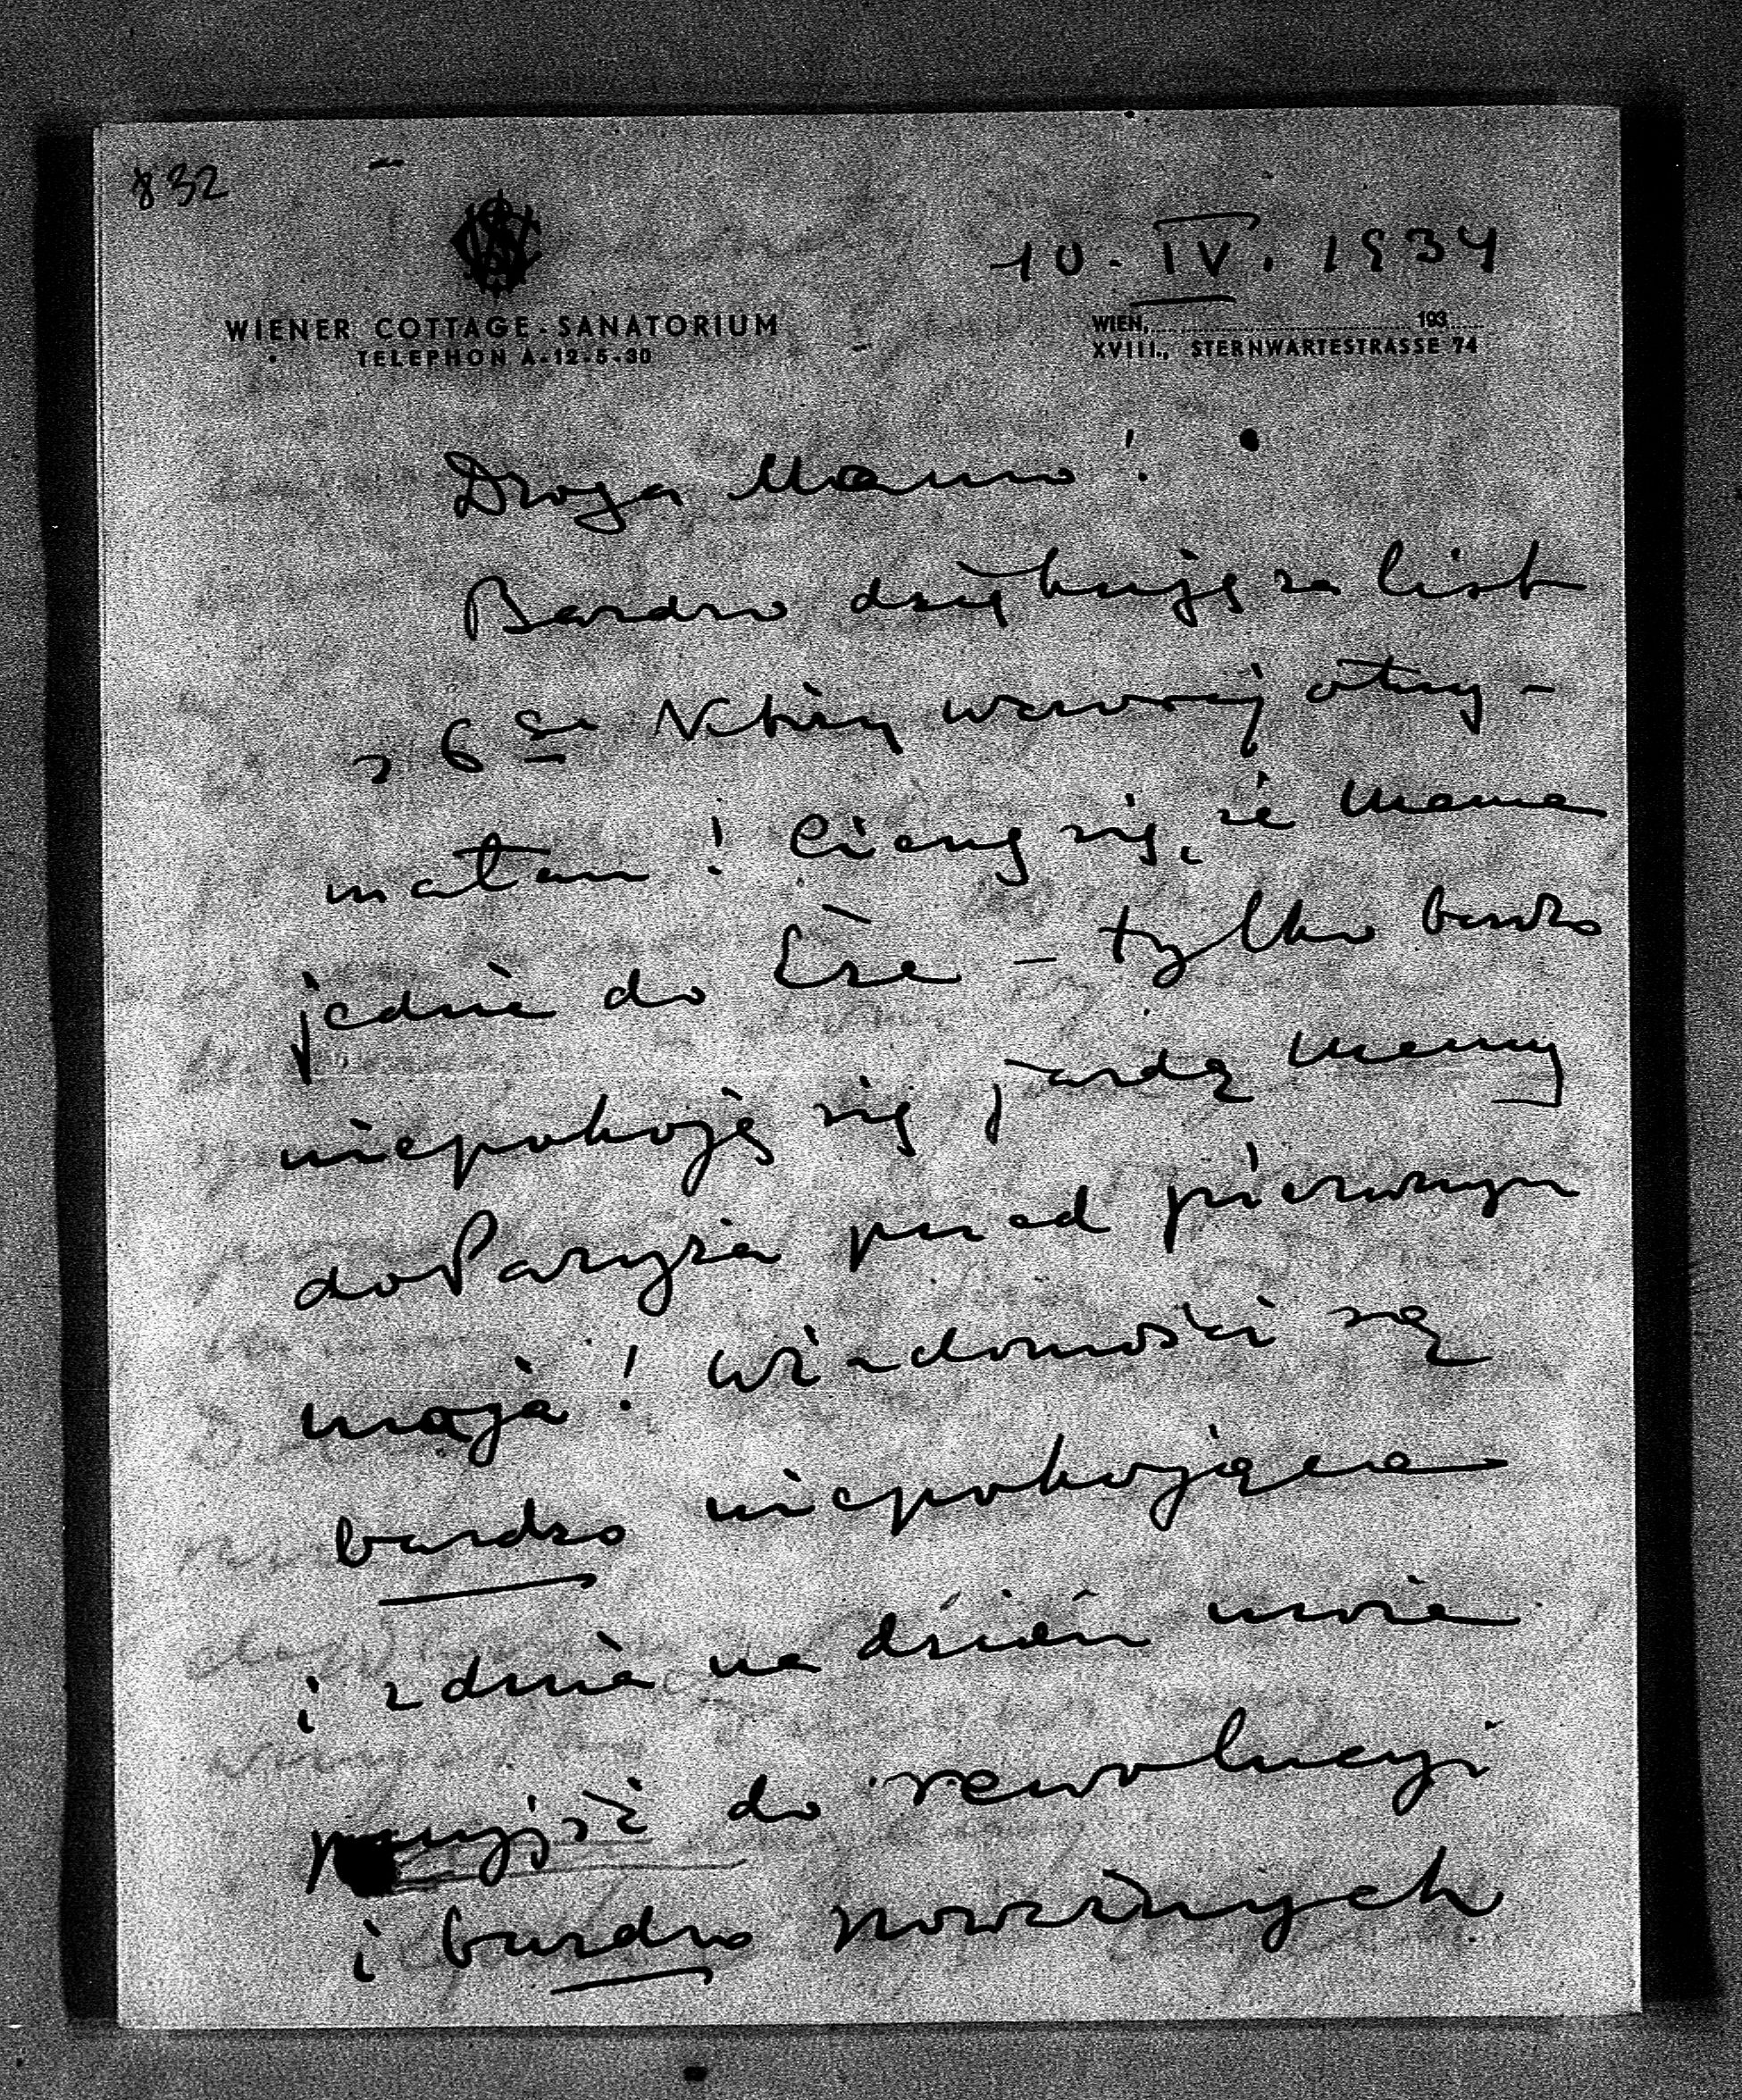 832
10. IV. 1934
WIENER COTTAGE-SANATORIUM
TELEPHON A-12-5-30
WIEN, 193
XVIII., STERNWARTESTRASSE 74
Droga Mamo!
Bardzo dziękuję za list
z 6 go który wczoraj otrzy-
małam! Cieszę się, że Mama
jedzie do Èze – tylko bardzo
niepokoję się jazdą Mamy
do Paryża przed pierwszym
maja! Wiadomości są
bardzo niepokojące
i z dnia na dzień może
przyjść do rewolucyi
i bardzo poważnych